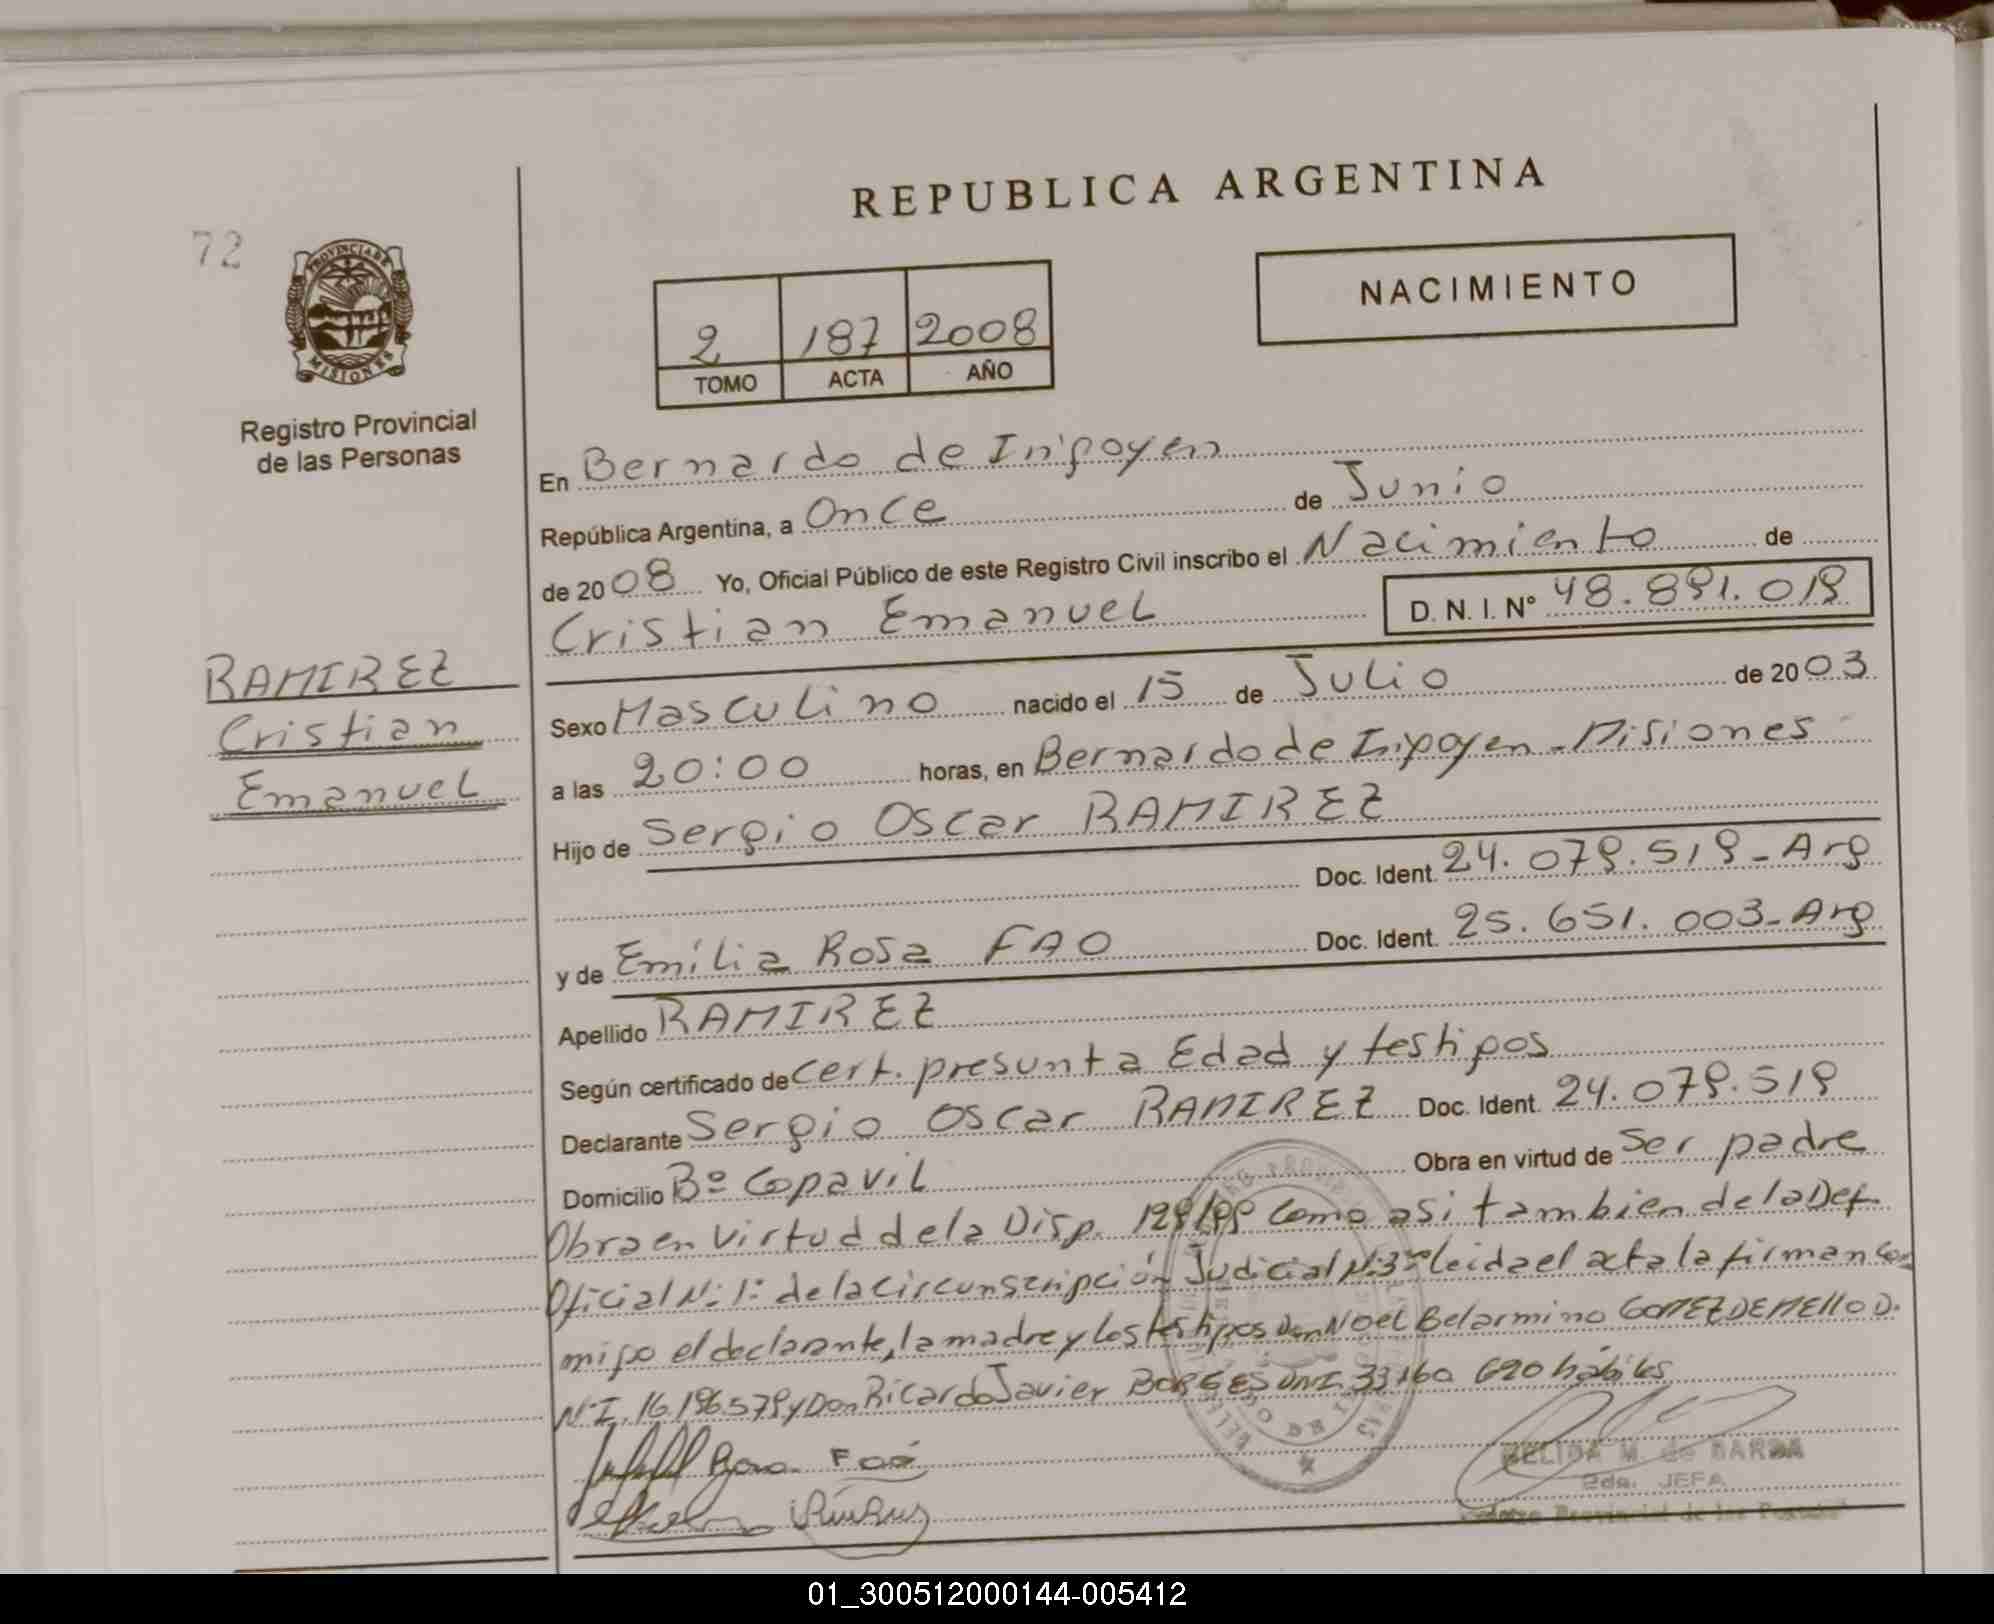 REPUBLICA ARGENTINA
72
PROVINCIA DE
MISIONES
Registro Provincial
de las Personas
NACIMIENTO
2 187 2008
TOMO ACTA AÑO
En Bernardo de Irigoyen
República Argentina, a Once de Junio
de 2008 Yo, Oficial Público de este Registro Civil inscribo el Nacimiento de
Cristian Emanuel D. N. I. Nº
RAMIREZ
Cristian
Emanuel
Sexo Masculino nacido el 15 de Julio de 2003
a las 20:00 horas, en Bernardo de Irigoyen - Misiones
Hijo de Sergio Oscar RAMIREZ
Doc. Ident. - Arg
y de Emilia Rosa FAO Doc. Ident. 25.651.003 - Arg
Apellido RAMIREZ
Según certificado de Cert. presunta Edad y testigos
Declarante Sergio Oscar RAMIREZ Doc. Ident.
Domicilio Bº Copavil Obra en virtud de Ser padre
Obra en virtud de la Disp. como asi tambien de la Def.
Oficial Nº 1º de la circunscripción Judicial Nº 3º leida el acta la firman con
migo el declarante, la madre y los testigos Don Noel Belarmino GOMEZ DE MELLO D.
N.I. y Don Ricardo Javier BORGES DNI. 33.160 hábiles
Rosa Fao
2da. JEFA
01_300512000144-005412